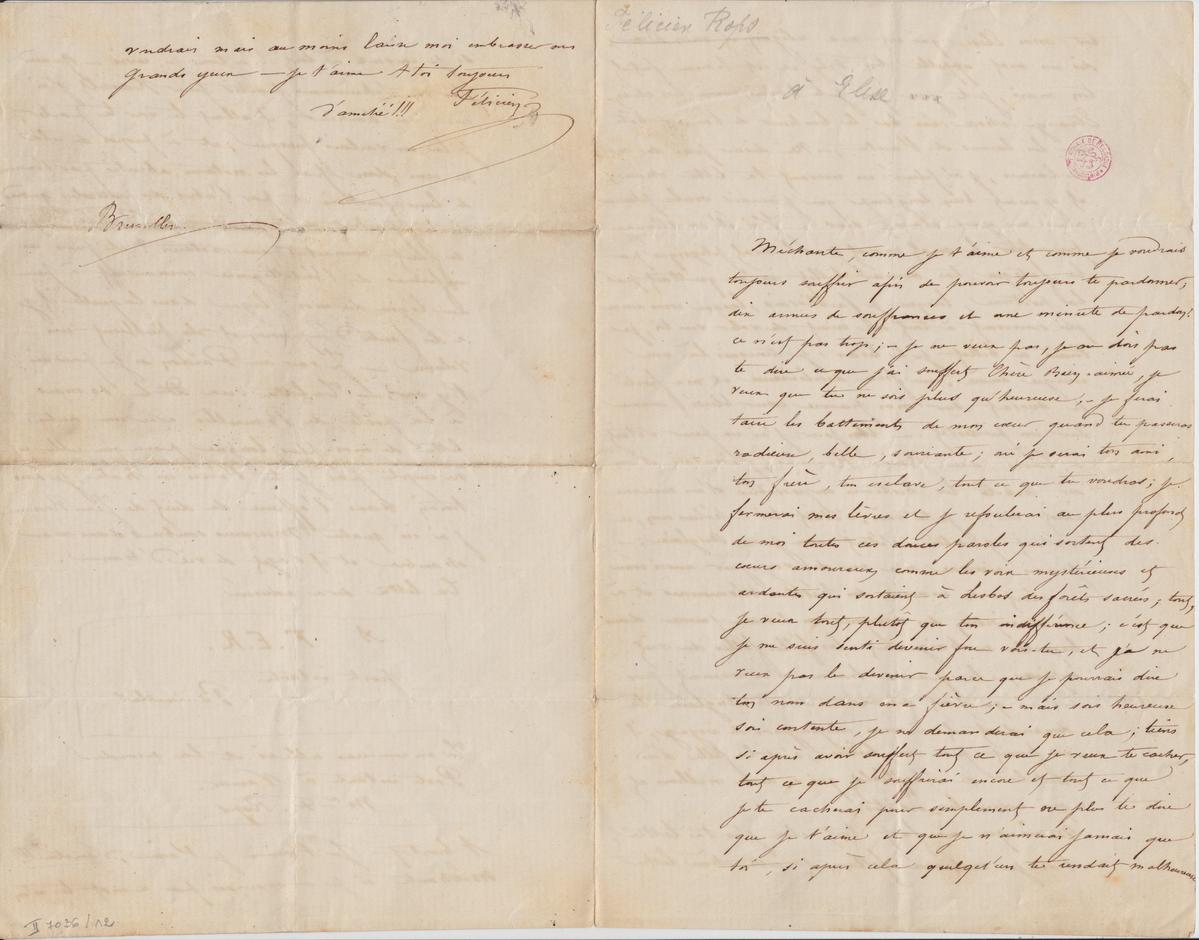 voudrais mais au moins laisse moi embrasser vos
grands yeux — je t'aime A toi toujours
Félicien
d'amitié!!!
Bruxelles
II 7036 / 12
Félicien Rops
à Elise
Méchante, comme je t'aime et comme je voudrais
toujours souffrir afin de pouvoir toujours te pardonner;
dix années de souffrances et une minute de pardon!
ce n'est pas trop; – je ne veux pas, je ne dois pas
te dire ce que j'ai souffert Chère Bien-aimée, je
veux que tu ne sois plus qu'heureuse, – je ferai
taire les battements de mon cœur quand tu passeras
radieuse, belle, souriante; oui je serai ton ami,
ton frère, ton esclave, tout ce que tu voudras; je
fermerai mes lèvres et je refoulerai au plus profond
de moi toutes ces douces paroles qui sortent des
cœurs amoureux comme les voix mystérieuses et
ardentes qui sortaient à Lesbos des forêts sacrées; tout,
je veux tout, plutôt que ton indifférence; c'est que
je me suis senti devenir fou vois-tu, et je ne
veux pas le devenir parce que je pourrais dire
ton nom dans ma fièvre; – mais sois heureuse
sois contente, je ne demanderai que cela; tiens
si après avoir souffert tout ce que je veux te cacher,
tout ce que je souffrirai encore et tout ce que
je te cacherai pour simplement ne plus te dire
que je t'aime et que je n'aimerai jamais que
toi, si après cela quelqu'un te rendait malheureuse